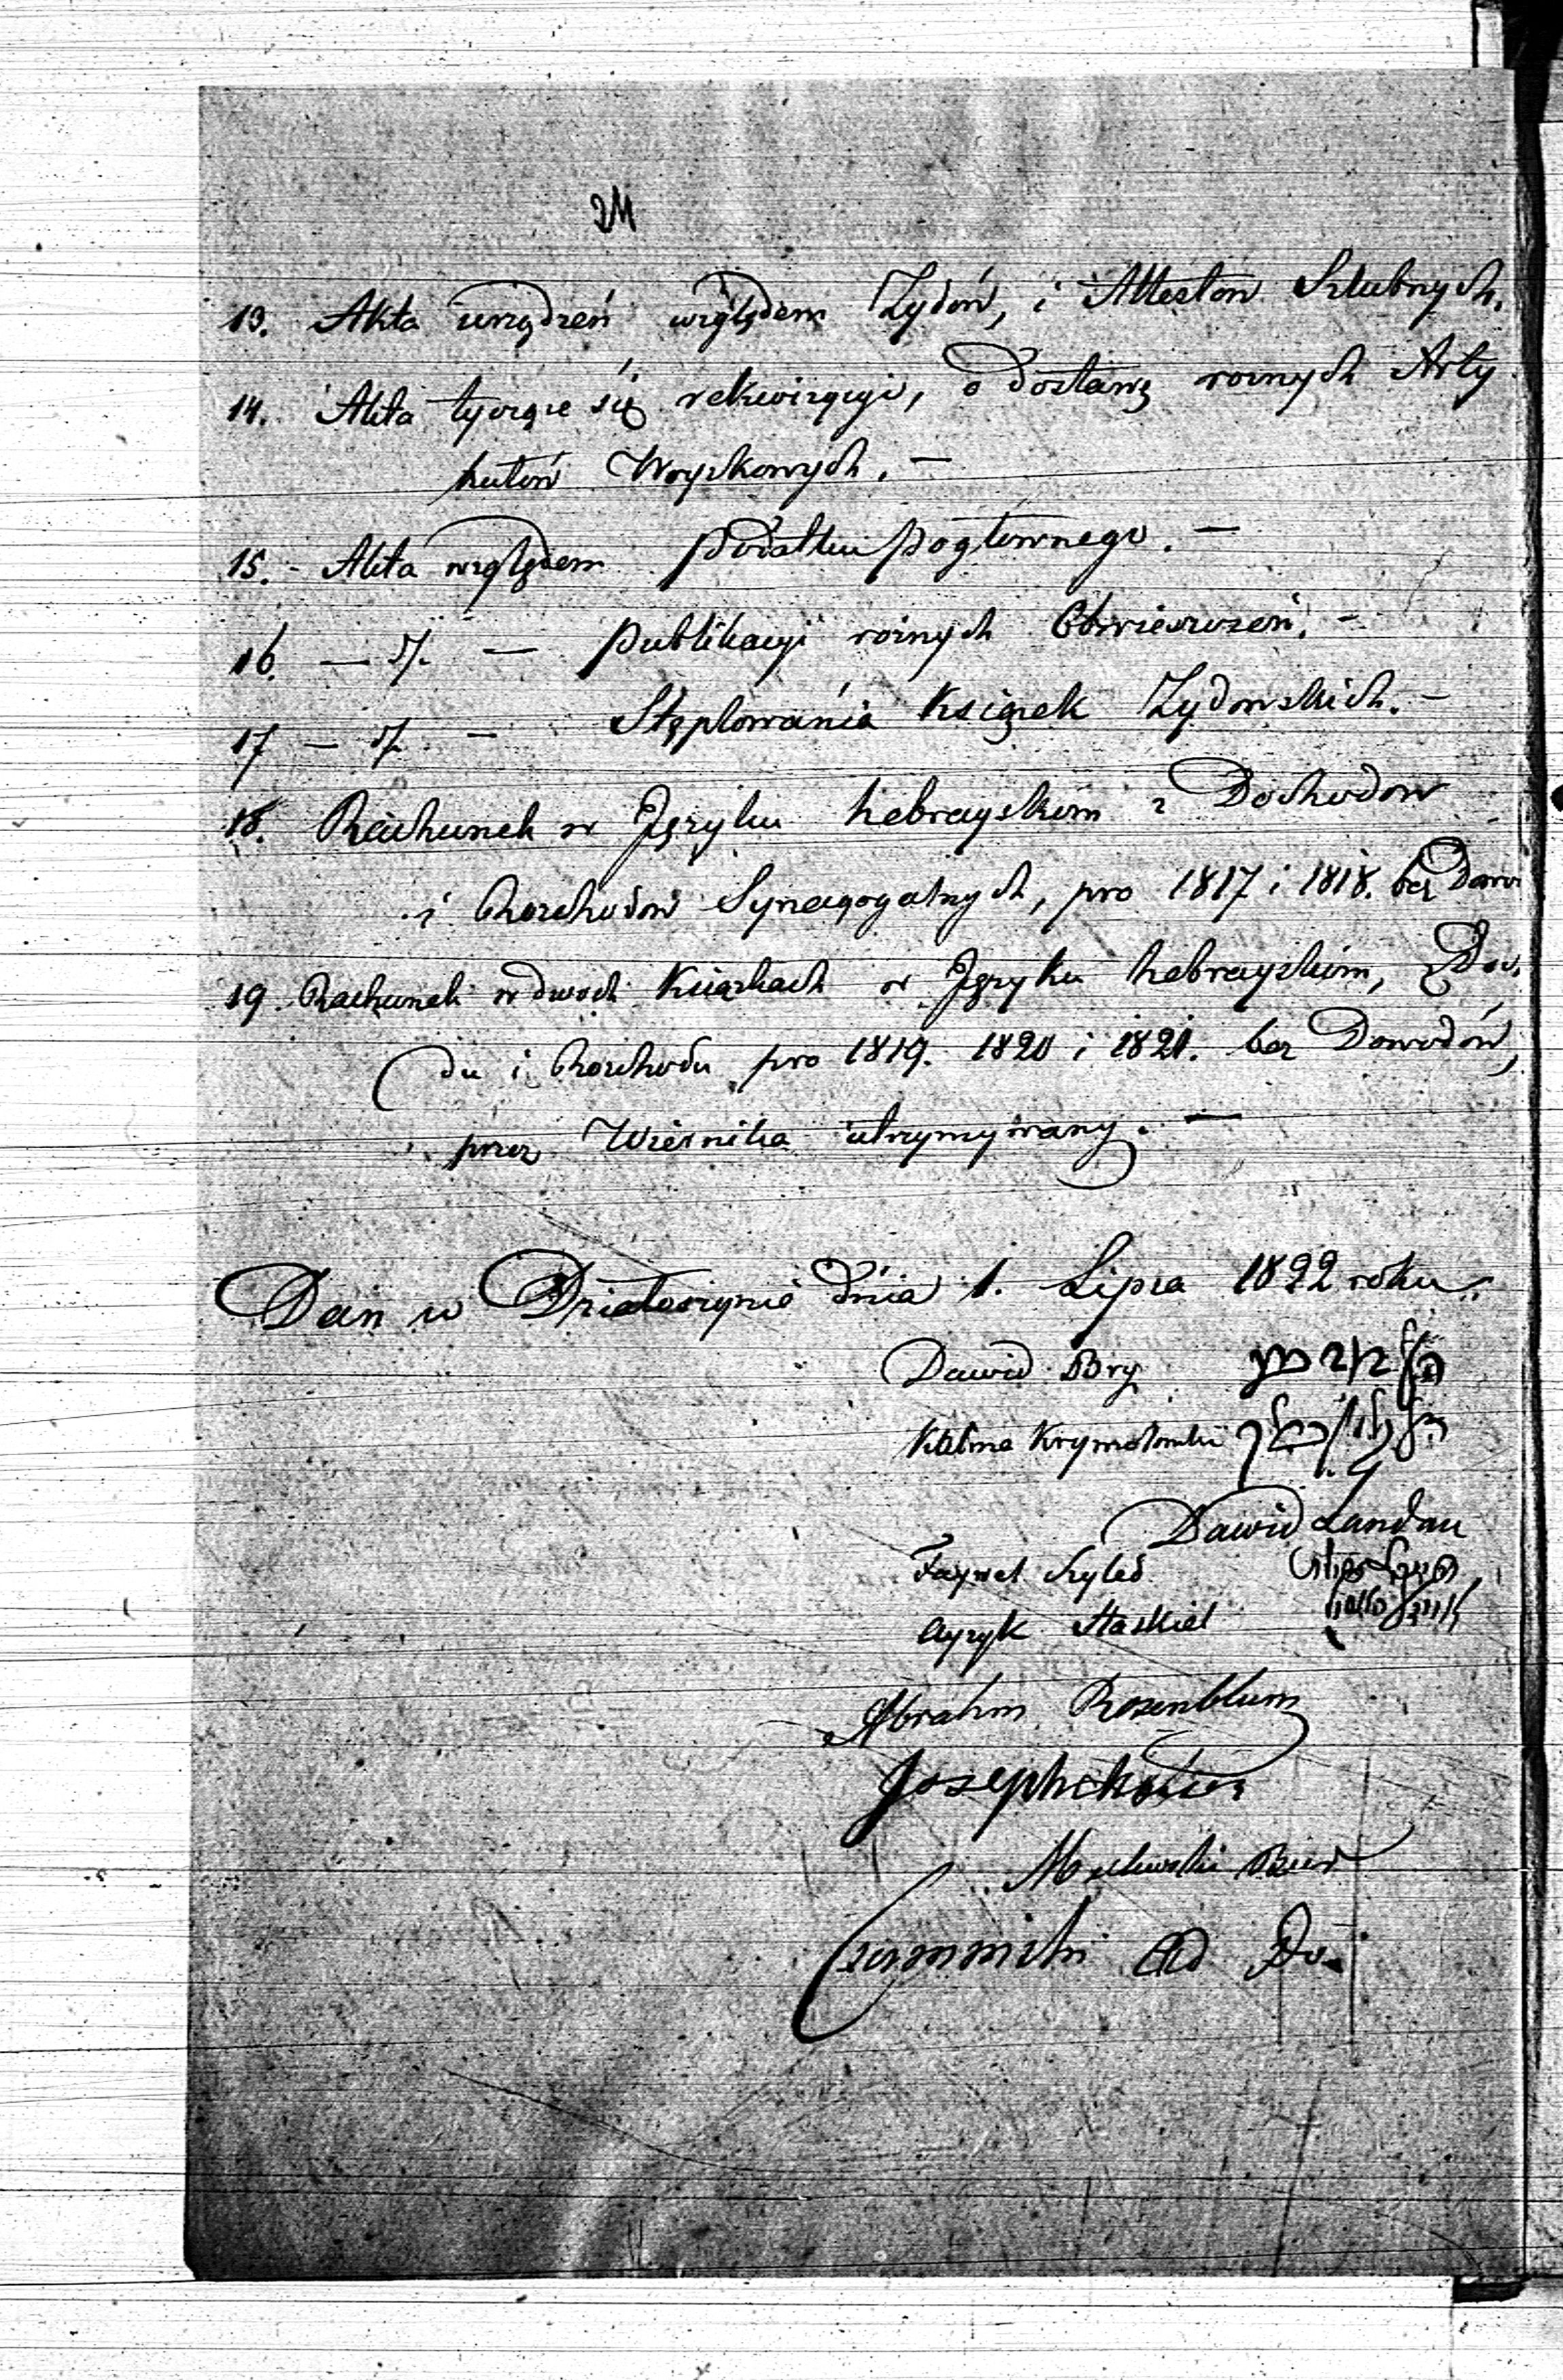 24
13. Akta urządzeń względem Zydoń, i Attestow Szlubnych.
14. Akta tyczące się rekwizycyi, o dostawę roznych Arty
kułoń Woyskowych. —
15. - Akta względem podatku pogłownego. —
16. — „ — publikacyi roznych Obwieszczeń. —
17 — „ — Stęplowania Książek Zydowskich. —
18. Rachunek w Języku hebrayskim z Dochodow
i Rozchodow Synagogalnych, pro 1817 i 1818. bez Dowo
19. Rachunek w dwoch Książkach w Języku hebrayskim, z Do
du i Rozchodu pro 1819. 1820 i 1821. bez Dowodów,
przez Wiernika utrzymywany. —
Dan w Działoszynie dnia 1. Lipca 1822 roku.
Dawid Bry
Kalma
Dawid Landau
Faywel
Ayzyk Haskiel
Abrahm Rosenblum
Joseph
Ad Do.